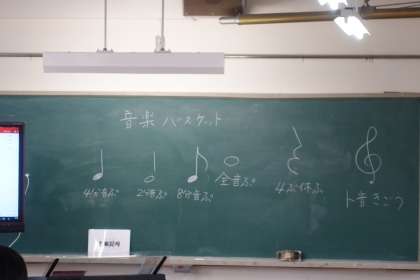 音楽バスケット
4分音ぷ
2分音ぷ
8分音ぷ
全音ぷ
4ぶ休ふ
ト音きごう